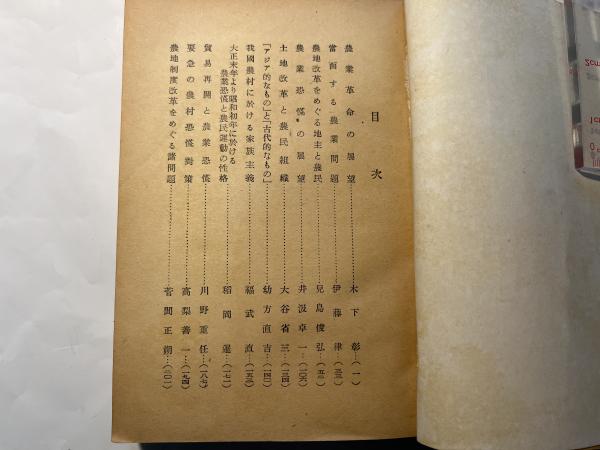 目次
農業革命の展望……木下彰…(一)
當面する農業問題……伊藤律…(三三)
農地改革をめぐる地主と農民……兒島俊弘…(五一)
農業恐慌の展望……井汲卓一…(一〇六)
土地改革と農民組織……大谷省三…(一三四)
「アジア的なもの」と「古代的なもの」……幼方直吉…(一四一)
我國農村に於ける家族主義……福武直…(一五三)
大正末年より昭和初年に於ける
農業恐慌と農民運動の性格……稻岡暹…(一七一)
貿易再開と農業恐慌……川野重任…(一八七)
緊急の農村恐慌對策……高梨善一…(一九四)
農地制度改革をめぐる諸問題……菅間正朔…(二〇一)